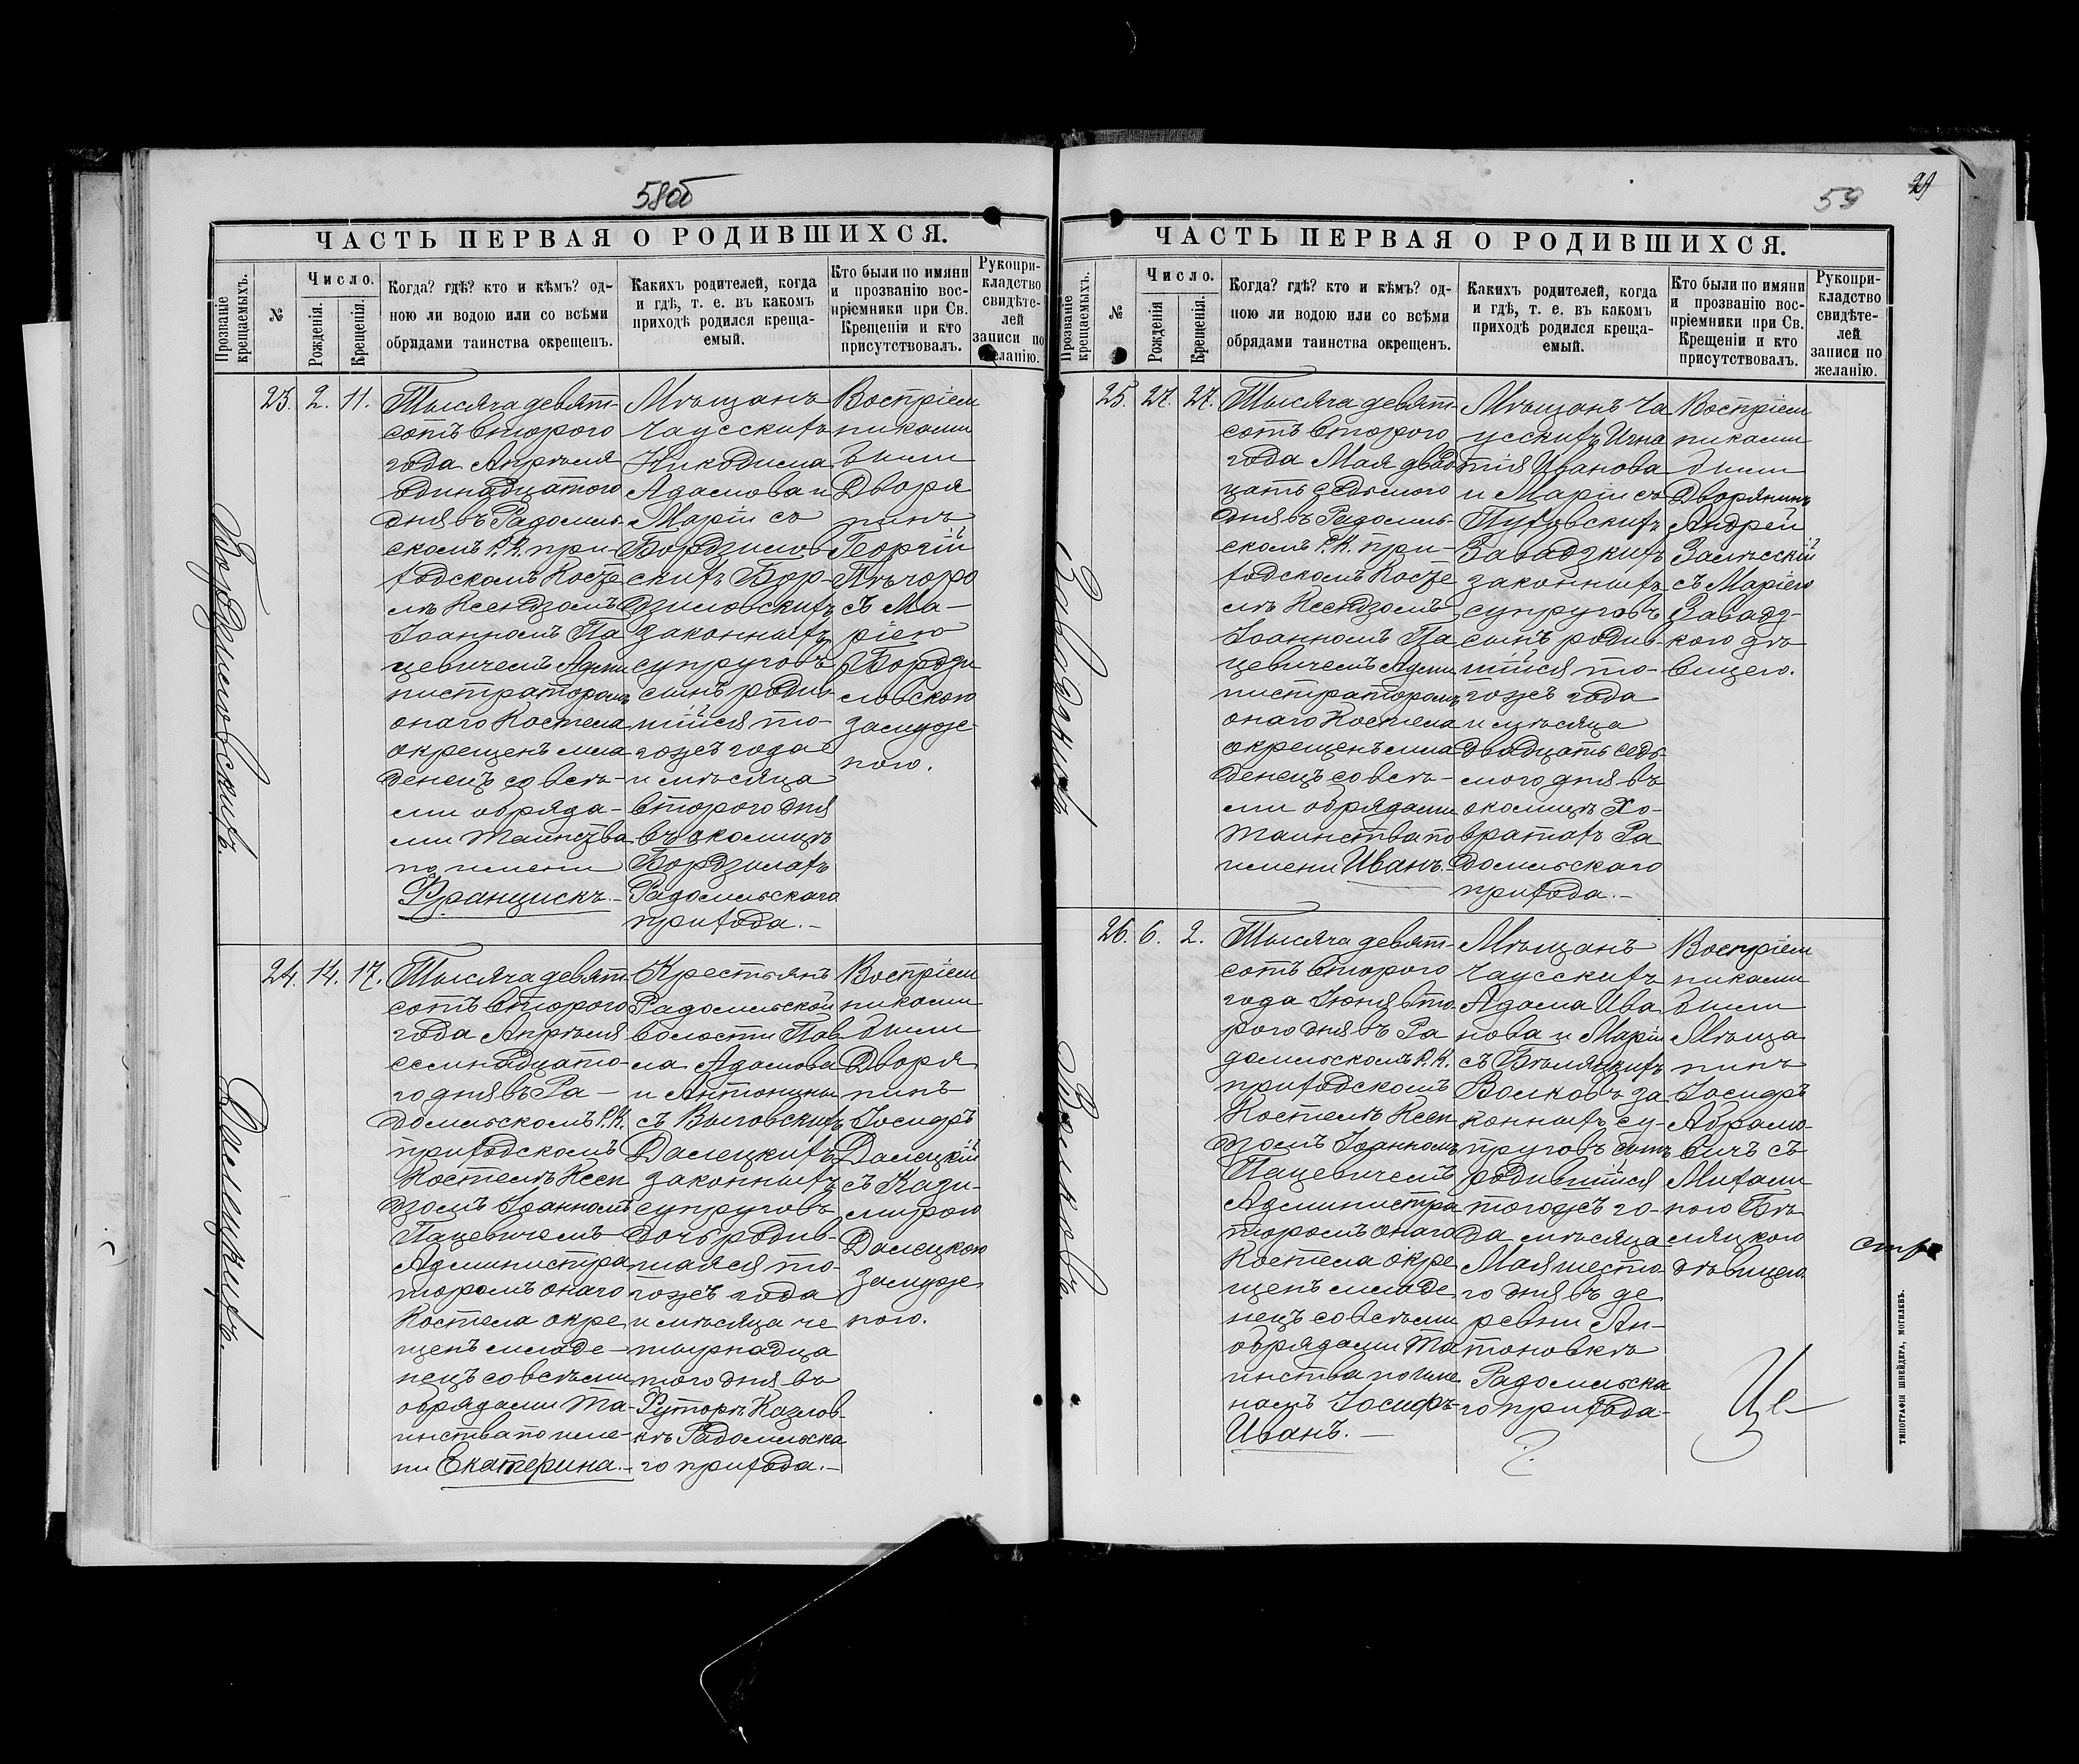 58об
ЧАСТЬ ПЕРВАЯ О РОДИВШИХСЯ.
Прозваніе крещаемыхъ.
№
Число.
Рожденія.
Крещенія.
Когда? гдѣ? кто и кѣмъ? од-
ною ли водою или со всѣми
обрядами таинства окрещенъ.
Какихъ родителей, когда
и гдѣ, т. е. въ какомъ
приходѣ родился креща-
емый.
Кто были по имяни
и прозванію вос-
пріемники при Св.
Крещеніи и кто
присутствовалъ.
Рукопри-
кладство
свидѣте-
лей
записи по
желанію.
Бордзиловскихъ.
23. 2. 11.
Тысяча девят-
сотъ второго
года Апрѣля
одинадцатого
дня въ Радомль-
скомъ Р.К. при-
ходскомъ Косте
лѣ Ксендзомъ
Іоанномъ Па
цевичемъ Адми
нистраторомъ
онаго Костела
окрещенъ мла
денецъ со всѣ-
ми обряда-
ми Таинства
по имени
Францискъ.-
Мѣщанъ
Чаусскихъ
Никодима
Адамова и
Маріи съ
Бордзилов-
скихъ Бор-
дзиловскихъ
законныхъ
супруговъ
сынъ родив-
шійся то-
гожъ года
и мѣсяца
второго дня
въ околицѣ
Бордзилахъ
Радомльскаго
прихода.-
Воспріем
никами
были
Дворя
нинъ
Георгій
съ Ма-
ріею
Бордзи
ловскою
замуж-
ною.
Далецкихъ.
24. 14. 17.
Тысяча девят-
сотъ второго
года Апрѣля
семнадцато-
го дня въ Ра-
домльскомъ Р.К.
приходскомъ
Костелѣ Ксен
дзомъ Іоанномъ
Пацевичемъ
Администра
торомъ онаго
Костела окре
щенъ младе-
нецъ со всѣми
обрядами Та-
инства по име-
ни Екатерина.-
Крестьянъ
Радомльской
волости Пав
ла Адамова
и Антонины
съ Выговскихъ
Далецкихъ
законныхъ
супруговъ
дочь родив-
шаяся то-
гожъ года
и мѣсяца че
тырнадца
того дня въ
Хуторѣ Казлов-
кѣ Радомльска
го прихода.-
Воспріем
никами
были
Дворя
нинъ
Іосифъ
Далецкій
съ Кази-
мирою
Далецкою
замуж-
ною.
59
29
ЧАСТЬ ПЕРВАЯ О РОДИВШИХСЯ.
Прозваніе крещаемыхъ.
№
Число.
Рожденія
Крещенія.
Когда? гдѣ? кто и кѣмъ? од-
ною ли водою или со всѣми
обрядами таинства окрещенъ.
Какихъ родителей, когда
и гдѣ, т. е. въ какомъ
приходѣ родился креща-
емый.
Кто были по имяни
и прозванію вос-
пріемники при Св.
Крещеніи и кто
присутствовалъ.
Рукопри-
кладство
свидѣте-
лей
записи по
желанію.
Завадзкихъ
25. 27. 27.
Тысяча девят-
сотъ второго
года Мая двад
цать седьмого
дня въ Радомль-
скомъ Р.К. при-
ходскомъ Косте
лѣ Ксендзомъ
Іоанномъ Па
цевичемъ Адми
нистраторомъ
онаго Костела
окрещенъ мла
денецъ со всѣ-
ми обрядами
Таинства по
имени Иванъ.-
Мѣщанъ Ча
усскихъ Игна
тія Иванова
и Маріи съ
Завадзкихъ
законныхъ
супруговъ
сынъ родив-
шійся то-
гожъ года
и мѣсяца
двадцать седь
мого дня въ
околицѣ Хо-
вратахъ Ра
домльскаго
прихода.-
Воспріем
никами
были
Дворянинъ
Андрей
Залѣсскій
съ Маріею
Завадз-
кою дѣ-
вицею.
Волковъ.
26. 6. 2.
Тысяча девят-
сотъ второго
года Іюня вто
рого дня въ Ра
домльскомъ Р.К.
приходскомъ
Костелѣ Ксен
дзомъ Іоанномъ
Пацевичемъ
Администра
торомъ онаго
Костела окре
щенъ младе
нецъ со всѣми
обрядами Та
инства по име
намъ Іосифъ-
Иванъ.-
Мѣщанъ
Чаусскихъ
Адама Ива
нова и Маріи
съ Бѣляцкихъ
Волковъ за
конныхъ су-
пруговъ сынъ
родившійся
тогожъ го-
да мѣсяца
Мая шесто
го дня въ де
ревни Ан-
тоновкѣ
Радомльска
го прихода-
Воспріем
никами
были
Мѣща
нинъ
Іосифъ
Абрамо-
вичъ съ
Михали
ною Бѣ-
ляцкою
дѣвицею.
ТИПОГРАФІЯ ШНЕЙДЕРА, МОГИЛЕВЪ.